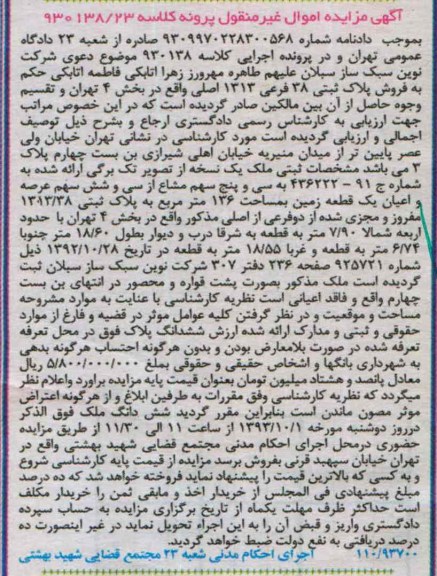 آگهی مزایده اموال غیرمنقول پرونده کلاسه ۹۳۰۱۳۸/۲۳
بموجب دادنامه شماره ۹۳۰۹۹۷۰۲۲۸۳۰۰۵۶۸ صادره از شعبه ۲۳ دادگاه
عمومی تهران و در پرونده اجرایی کلاسه ۹۳۰۱۳۸ موضوع دعوی شرکت
نوین سبک ساز سبلان علیهم طاهره مهرورز زهرا اتابکی فاطمه اتابکی حکم
به فروش پلاک ثبتی ۳۸ فرعی ۱۳۱۳ اصلی واقع در بخش ۴ تهران و تقسیم
وجوه حاصل از آن بین مالکین صادر گردیده است که در این خصوص مراتب
جهت ارزیابی به کارشناس رسمی دادگستری ارجاع و بشرح ذیل توصیف
اجمالی و ارزیابی گردیده است مورد کارشناسی در نشانی تهران خیابان ولی
عصر پایین تر از میدان منیریه خیابان اهلی شیرازی بن بست چهارم پلاک
۳ می باشد مشخصات ثبتی ملک یک نسخه از تصویر تک برگی ارائه شده به
شماره ج ۹۱ – ۴۳۶۲۲۲ به سی و پنج سهم مشاع از سی و شش سهم عرصه
و اعیان یک قطعه زمین بمساحت ۱۳۶ متر مربع به پلاک ثبتی ۱۳۱۳/۳۸
مفروز و مجزی شده از دوفرعی از اصلی مذکور واقع در بخش ۴ تهران با حدود
اربعه شمالا ۷/۹۰ متر به قطعه به شرقا درب و دیوار بطول ۱۸/۶۰ متر جنوبا
۶/۷۴ متر به قطعه و غربا ۱۸/۵۵ متر به قطعه در تاریخ ۱۳۹۲/۱۰/۲۸ ذیل
شماره ۹۲۵۷۲۱ صفحه ۲۳۶ دفتر ۳۰۷ شرکت نوین سبک ساز سبلان ثبت
گردیده است ملک مذکور بصورت پشت قواره و محصور در انتهای بن بست
چهارم واقع و فاقد اعیانی است نظریه کارشناسی با عنایت به موارد مشروحه
مساحت و موقعیت و در نظر گرفتن کلیه عوامل موثر در قضیه و فارغ از موارد
حقوقی و ثبتی و مدارک ارائه شده ارزش ششدانگ پلاک فوق در محل تعرفه
تعرفه شده در صورت بلامعارض بودن و بدون هرگونه احتساب هرگونه بدهی
به شهرداری بانگها و اشخاص حقیقی و حقوقی بمبلغ ۵/۸۰۰/۰۰۰/۰۰۰ ریال
معادل پانصد و هشتاد میلیون تومان بعنوان قیمت پایه مزایده براورد واعلام نظر
میگردد که نظریه کارشناسی وفق مقررات به طرفین ابلاغ و از هرگونه اعتراض
موثر مصون ماندن است بنابراین مقرر گردید شش دانگ ملک فوق الذکر
درروز دوشنبه مورخه ۱۳۹۳/۱۰/۱ از ساعت ۱۱ الی ۱۱/۳۰ از طریق مزایده
حضوری درمحل اجرای احکام مدنی مجتمع قضایی شهید بهشتی واقع در
تهران خیابان سپهبد قرنی بفروش برسد مزایده از قیمت پایه کارشناسی شروع
و به کسی که بالاترین قیمت را پیشنهاد نماید فروخته خواهد شد که ده درصد
مبلغ پیشنهادی فی المجلس از خریدار اخذ و مابقی ثمن را خریدار مکلف
است حداکثر ظرف مهلت یکماه از تاریخ برگزاری مزایده به حساب سپرده
دادگستری واریز و قبض آن را به این اجراء تحویل نماید در غیر اینصورت ده
درصد دریافتی به نفع دولت ضبط خواهد گردید.
۱۱۰/۹۳۷۰۰ اجرای احکام مدنی شعبه ۲۳ مجتمع قضایی شهید بهشتی